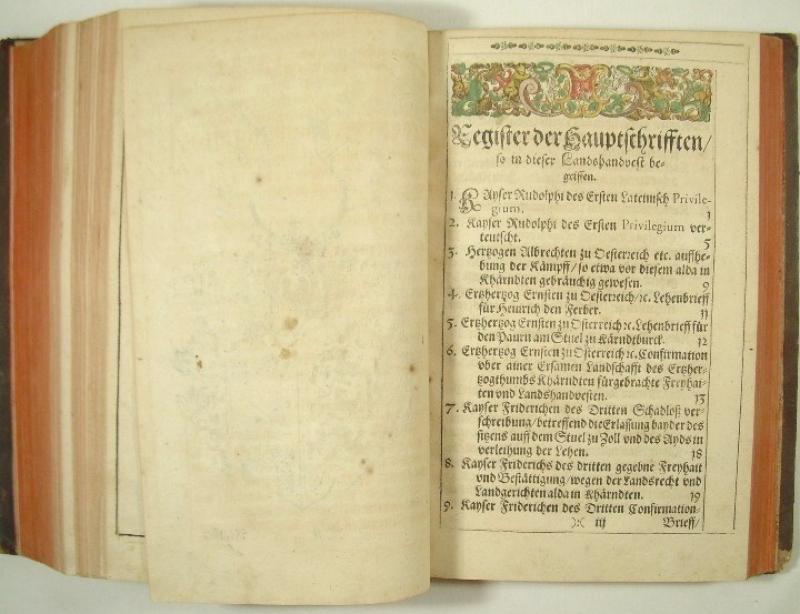 Register der Hauptschrifften/
so in dieser Landshandvest be-
griffen.
1. KAyser Rudolphi des Ersten Lateinisch Privile-
gium. 1
2. Kayser Rudolphi des Ersten Privilegium ver-
teutscht. 5
3. Hertzogen Albrechten zu Oesterreich etc. auffhe-
bung der Kämpff/ so etwa vor diesem alda in
Khärndten gebräuchig gewesen. 9
4. Ertzhertzog Ernsten zu Oesterreich/ꝛc. Lehenbrieff
für Heinrich den Ferber. 11
5. Ertzhertzog Ernsten zu Osterreich ꝛc. Lehenbrieff für
den Paurn am Stuel zu Kärndtburck. 12
6. Ertzhertzog Ernsten zu Osterreich ꝛc. Confirmation
vber ainer Ersamen Landschafft des Ertzher-
tzogthumbs Khärndten fürgebrachte Freyhai-
ten vnd Landshandvesten. 13
7. Kayser Friderichen des Dritten Schadloß ver-
schreibung/ betreffend die Erlassung bayder des
sitzens auff dem Stuel zu Zoll vnd des Ayds in
verleihung der Lehen. 18
8. Kayser Friderichs des dritten gegebne Freyhait
vnd Bestättigung/ wegen der Landsrecht vnd
Landgerichten alda in Khärndten. 19
9. Kayser Friderichen des Dritten Confirmation-
):( iij Brieff/